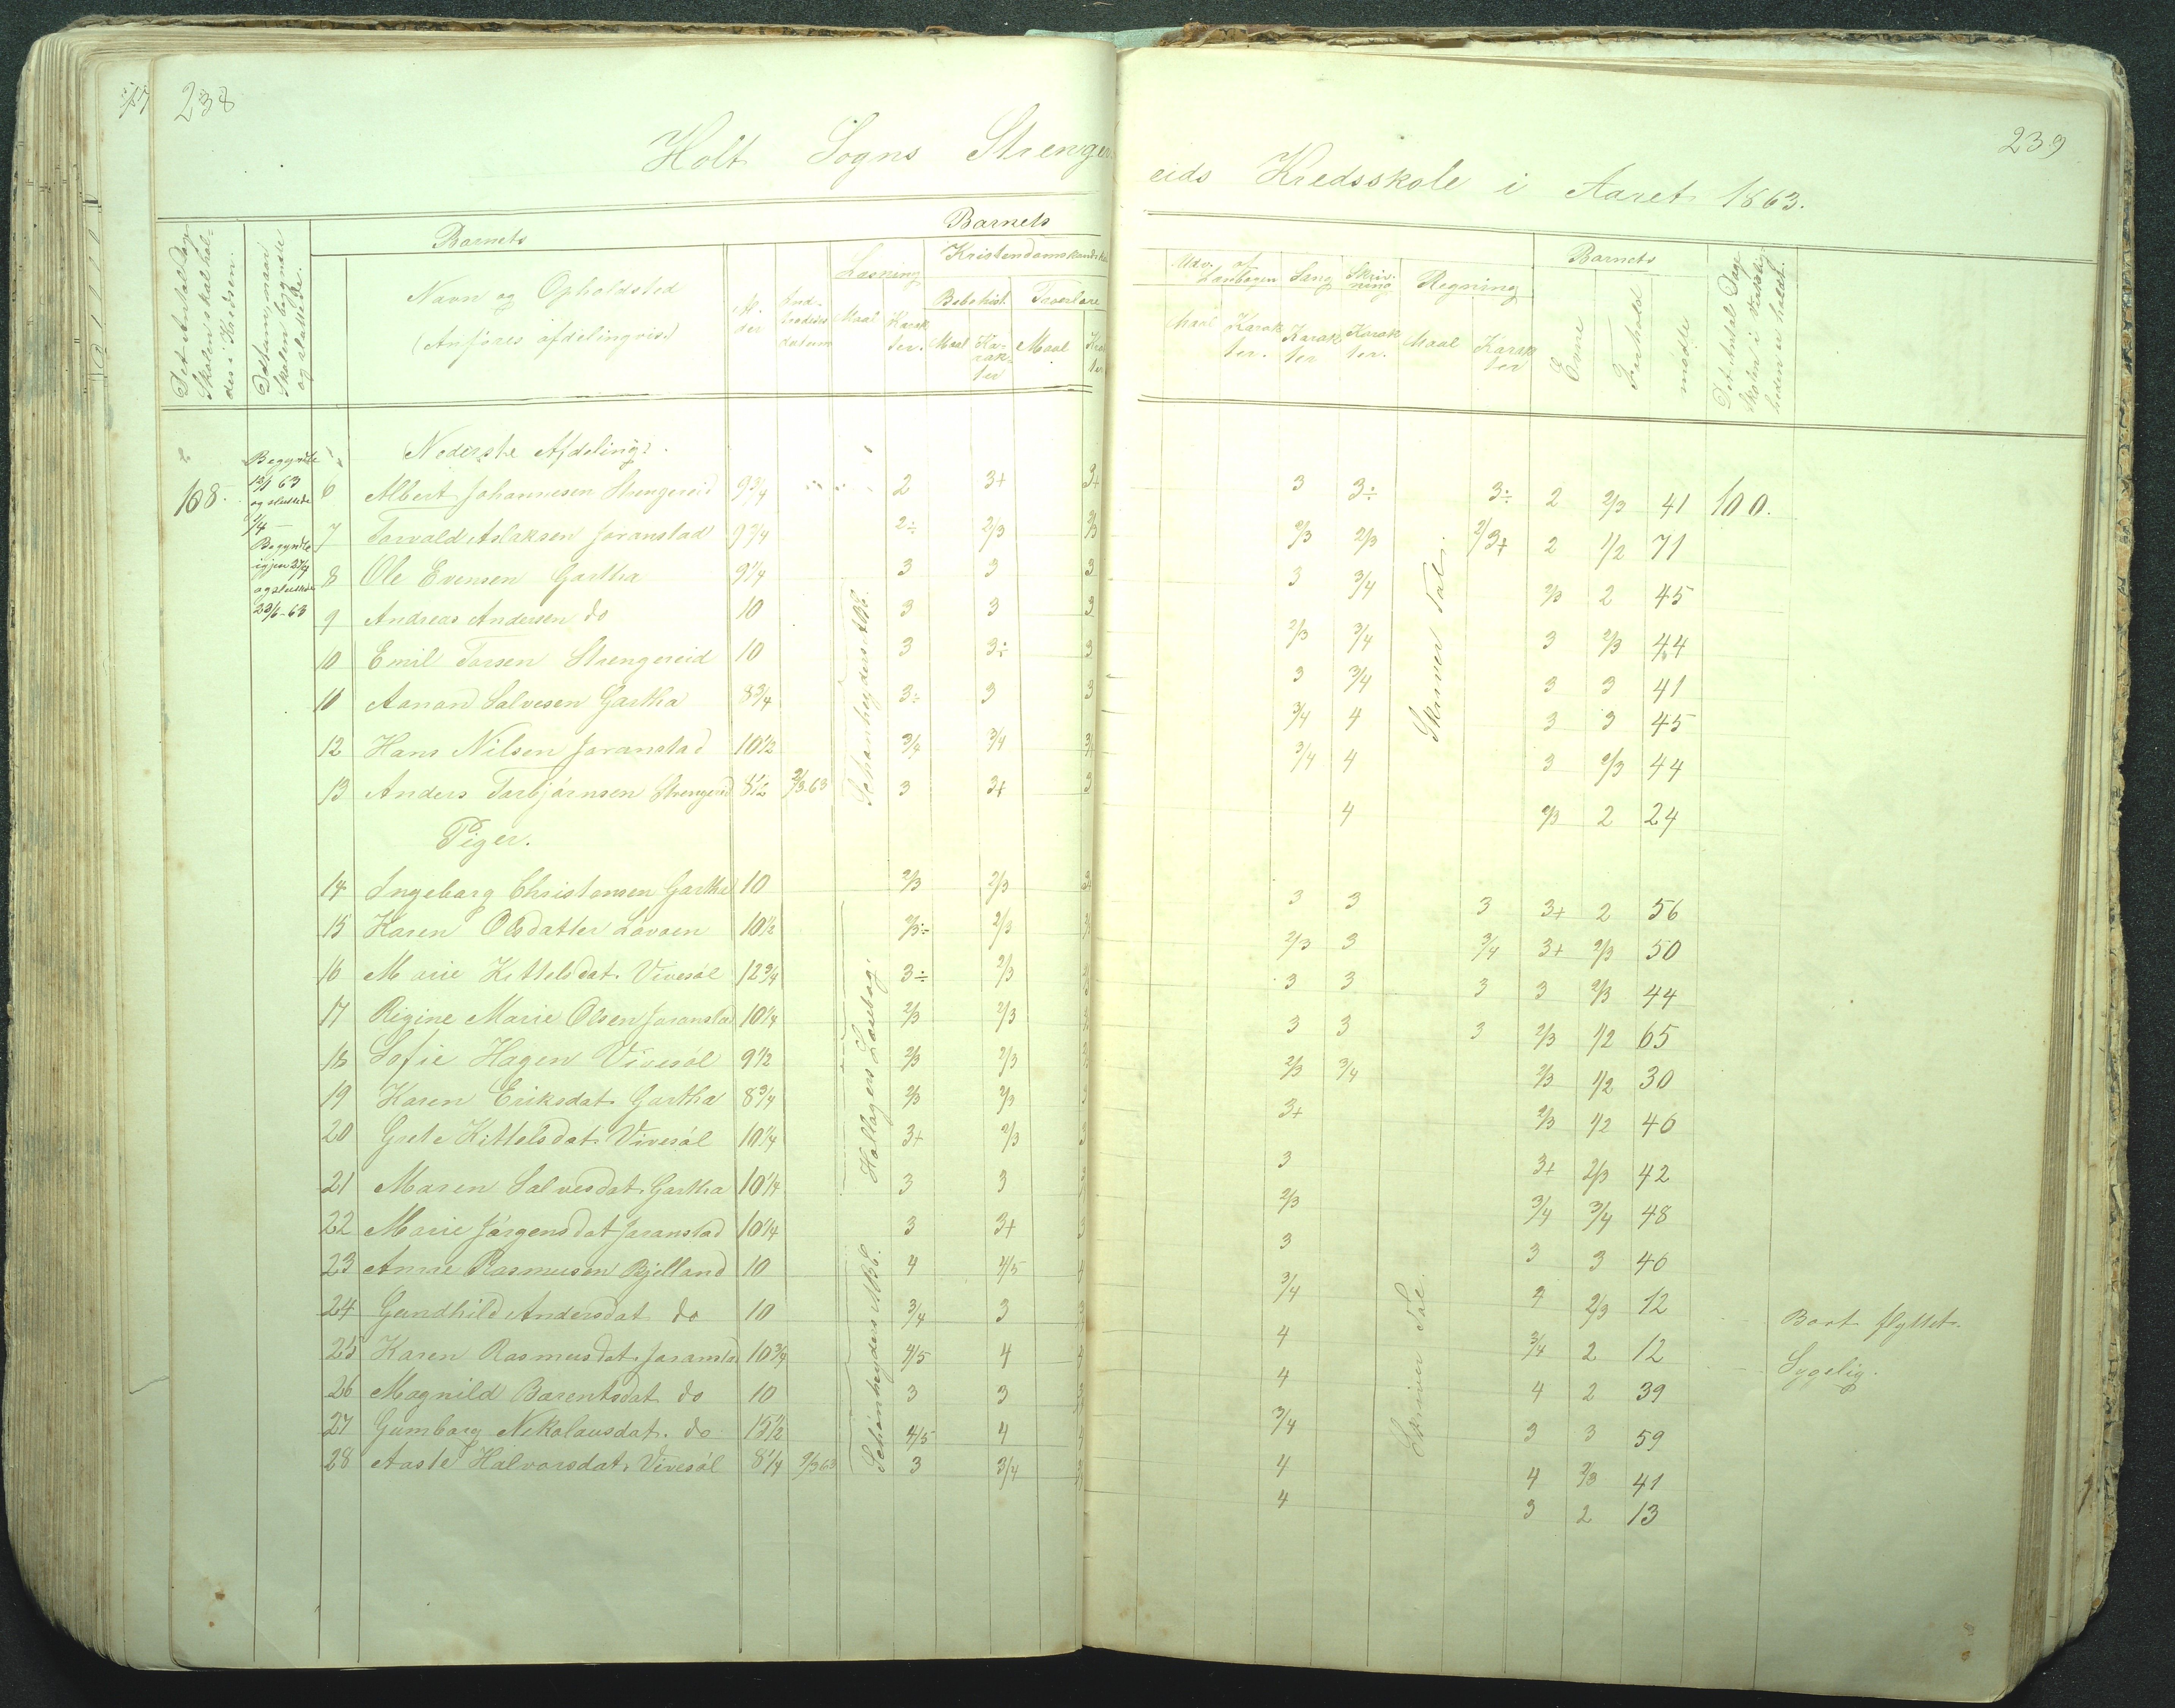 238
239
Holt Sogns Strenger
eids Kredsskole i Aaret 1863.
Det Antal Dage Skolen skal holdes i Kredsen.
Datum, naar Skolen begyndte og sluttede.
Barnets
Navn og Opholdsted
(Anføres afdelingvis.)
Al-
der
Ind-
trædelses
datum
Barnets
Læsning
Maal
Karak
ter.
Kristendomskundsk
Bibelhist.
Maal
Ka-
rak-
ter
Troeslære
Maal
Udv. af
Læsebogen
Maal
Karak
ter.
Sang
Karak
ter
Skriv-
ning
Karak
ter.
Regning
Maal
Karak
ter
Barnets
Evne
Forhold
mødte
Det Antal Dage Skolen i Virkeligheden er holdt.
Nederste Afdeling.
108.
Begyndte
13/1 63
og sluttede
1/4 —
Begyndte
igjen 27/4
og sluttede
23/6-63
6 Albert Johannesen Strengereid 9 3/4 2 3+ 3+ 3 3÷ 3÷ 2 2/3 41 100.
7 Torvald Aslaksen Joranstad 9 3/4 2÷ 2/3 2/3 2/3 2/3 2/3+ 2 1/2 71
8 Ole Evensen Gartha 9 1/4 3 3 3 3 3/4 2/3 2 45
9 Andreas Andersen do 10 3 3 3 2/3 3/4 3 2/3 44
10 Emil Torsen Strengereid 10 3 3÷ 3 3 3/4 3 3 41
11 Aanon Salvesen Gartha 8 3/4 3÷ 3 3 3/4 4 3 3 45
12 Hans Nilsen Joranstad 10 1/2 3/4 3/4 3/4 3/4 4 3 2/3 44
13 Anders Torbjørnsen Strengereid 8 1/2 2/3 63 3 3+ 3 4 2/3 2 24
Schønheyders Abb.
Skriver Tal.
Piger.
14 Ingeborg Christensen Gartha 10 2/3 2/3 3 3 3 3+ 2 56
15 Karen Olsdatter Løvaen 10 1/2 2/3÷ 2/3 2/3 3 3/4 3+ 2/3 50
16 Marie Kittelsdat. Vivesøl 12 3/4 3÷ 2/3 3 3 3 3 2/3 44
17 Regine Marie Olsen Joranstad 10 1/4 2/3 2/3 3 3 3 2/3 1/2 65
18 Sofie Hagen Vivesøl 9 1/2 2/3 2/3 2/3 3/4 2/3 1/2 30
19 Karen Eriksdat. Gartha 8 3/4 2/3 2/3 3+ 2/3 1/2 40
20 Grete Kittelsdat. Vivesøl 10 1/4 3+ 2/3 3 3 3+ 2/3 42
21 Maren Salvesdat. Gartha 10 1/4 3 3 3 2/3 3/4 3/4 48
22 Marie Jørgensdat Joranstad 10 1/4 3 3+ 3 3 3 3 40
23 Anne Rasmusen Bjelland 10 4 4/5 4 3/4 4 2/3 12 Bort flyttet.
24 Gundhild Andersdat. do 10 3/4 3 4 3/4 2 12 Sygelig.
25 Karen Rasmusdat. Joranstad 10 3/4 4/5 4 4 4 2 39
26 Magnild Berentsdat. do 10 3 3 3/4 3 3 59
27 Gumborg Nikolausdat. do 15 1/2 4/5 4 4 4 4 2/3 41
28 Aaste Halvorsdat. Vivesøl 8 1/4 2/3 63 3 3/4 4 3 2 13
Holtagers Læsebog.
Schønheyders Abb.
Skriver Tal.